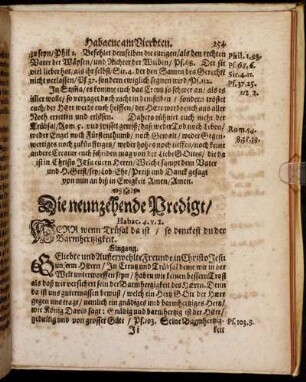 Habacuc am Vierdten. 254
zu seyn/Phil 1. Befehlet demselben die ewigen/als den rechten Phil. 1.23.
Vater der Wäysen/ und Richter der Witben/Psal.68. Der sie Psf. 68. 6.
viel lieber hat/als ihr selbst/Sir.4. der den Samen des Gerecht Sir. 4. 11.
nicht verlassen/ 37. sondern ewiglich segnen wird/Ps.112. Ps. 37. 25.
112 2.
In Summa, es komme euch das Creutz so schwer an/ als es
immer wolle/ so verzaget doch nicht in demselben / sondern tröstet
euch/der HErr werde euch helffen/der Herr werde euch aus aller
Noth erretten und erlösen. Dahero rühmet euch mehr der
Trübsal/Rom 5. und wisset gewiß/ daß weder Tod noch Leben/ Rom. 5. 4.
weder Engel noch Fürstenthumb/ noch Gewalt/ weder Gegen- 8. 38.
wertiges noch zukünfftiges/ weder hohes noch tieffes/ noch keine
andere Creatur euch scheiden mag von der Liebe Gottes/ die da
ist in Christo Jesu eurem Herrn/ Welchem sampt dem Vater
und H. Geist/sey Lob/Ehr/ Preiß und Danck gesagt
von nun an biß in Ewigkeit Amen/Amen.
Die neunzehende Predigt/
Habac. 4. v. 2.
HERR wenn Trübsal da ist / so denckest du der
Barmhertzigkeit.
Eingang.
GEliebte und Außerwehlte Freunde in Christo Jesu
unserm Herrn/ In Creutz und Trübsal denen wir in der
Welt unterworffen seyn/ haben wir keinen bessern Trost
als daß wir versichert sein der Barmhertzigkeit des Herrn. Denn
da ist uns gutermassen bewust/ welch ein Hertz Gott der HErr
gegen uns trage/ nemlich ein gnädiges und barmhertziges Hertz/
wie König David sagt: Gnädig und barmhertzig ist der HErr/
gedultig und von grosser Güte / Ps.103. Seine Barmhertzig- Ps. 103. 8.
Ii keit